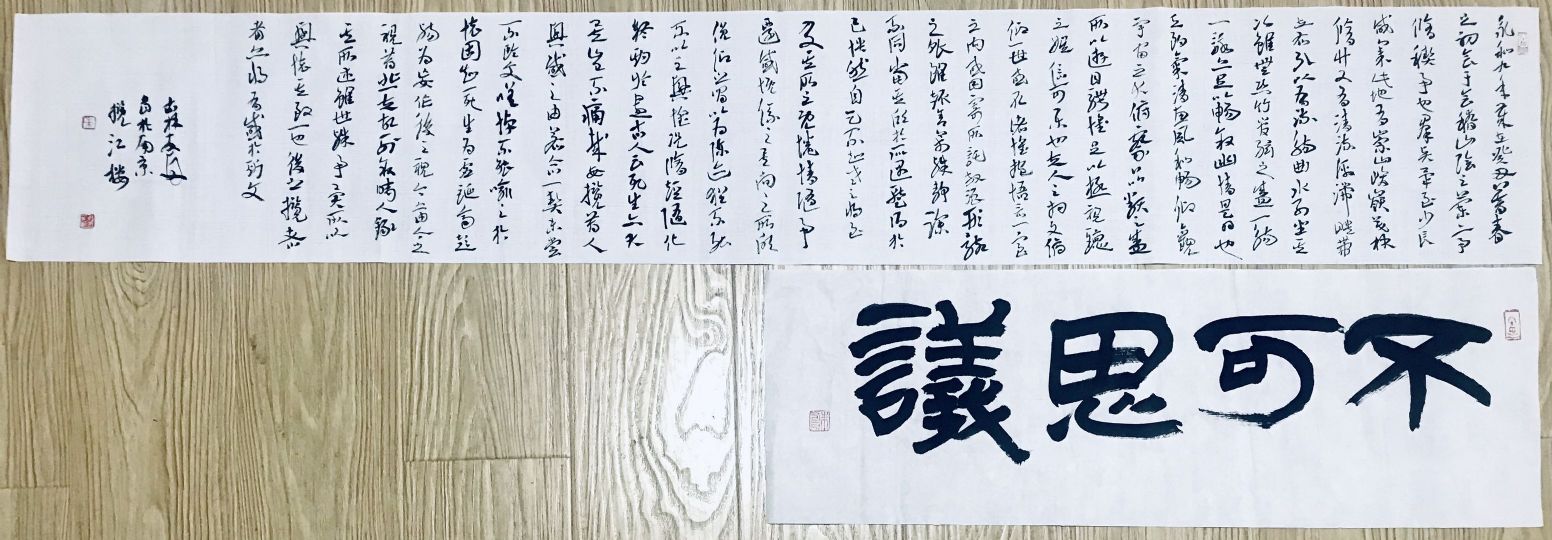 永和九年歲在癸丑暮春
之初會于會稽山陰之蘭亭
脩稧事也羣賢畢至少長
咸集此地有崇山峻領茂林
脩竹又有清流激湍映帶
左右引以為流觴曲水列坐其
次雖無絲竹管弦之盛一觴
一詠亦足以暢敘幽情是日也
天朗氣清惠風和暢仰觀
宇宙之大俯察品類之盛
所以遊目騁懷足以極視聽
之娛信可樂也夫人之相與俯
仰一世或取諸懷抱悟言一室
之內或因寄所託放浪形骸
之外雖趣舍萬殊靜躁
不同當其欣於所遇暫得於
己怏然自足不知老之將至
及其所之既惓情隨事
遷感慨係之矣向之所欣
俛仰之間以為陳迹猶不能
不以之興懷況脩短隨化
終期於盡古人云死生亦大
矣豈不痛哉每攬昔人
興感之由若合一契未嘗
不臨文嗟悼不能喻之於
懷固知一死生為虛誕齊彭
殤為妄作後之視今亦由今之
視昔悲夫故列敘時人錄
其所述雖世殊事異所以
興懷其致一也後之攬
者亦將有感於斯文
書於南京
攬江樓
不可思議